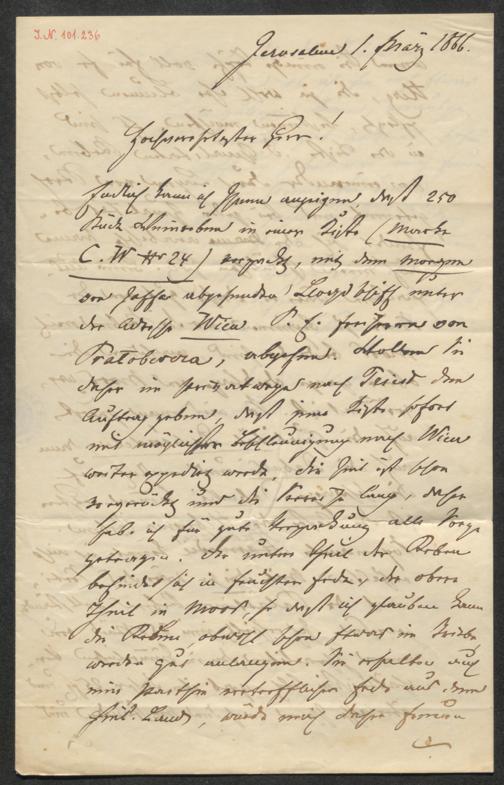 J.N. 101.236
Jerusalem 1. März 1866.
Hochverehrtester Herr!
Endlich kann ich Ihnen anzeigen, daß 250
Stück Weinreben in einer Kiste (Marke
C. W Nr 24) verpackt, mit dem morgen
von Jaffa abgehenden Lloydschiff unter
der Adresse Wien S. E. Freiherrn von
Pratobevera, abgehen. Wollen Sie
daher im Privatwege nach Triest den
Auftrag geben, daß jene Kiste sofort
mit möglichster Beschleunigung nach Wien
weiter expedirt werde, die Zeit ist schon
vorgerückt und die Reise ist lang, daher
habe ich für gute Verpackung alle Sorge
getragen. Der untere Theil der Reben
befindet sich in feuchter Erde, der obere
Theil in Moos, so daß ich glauben kann
die Reben obwohl schon etwas im Triebe,
werden gut anlangen. Sie erhalten auch
eine Parthie vortrefflicher Erde aus dem
heil. Lande, würde mich daher freuen